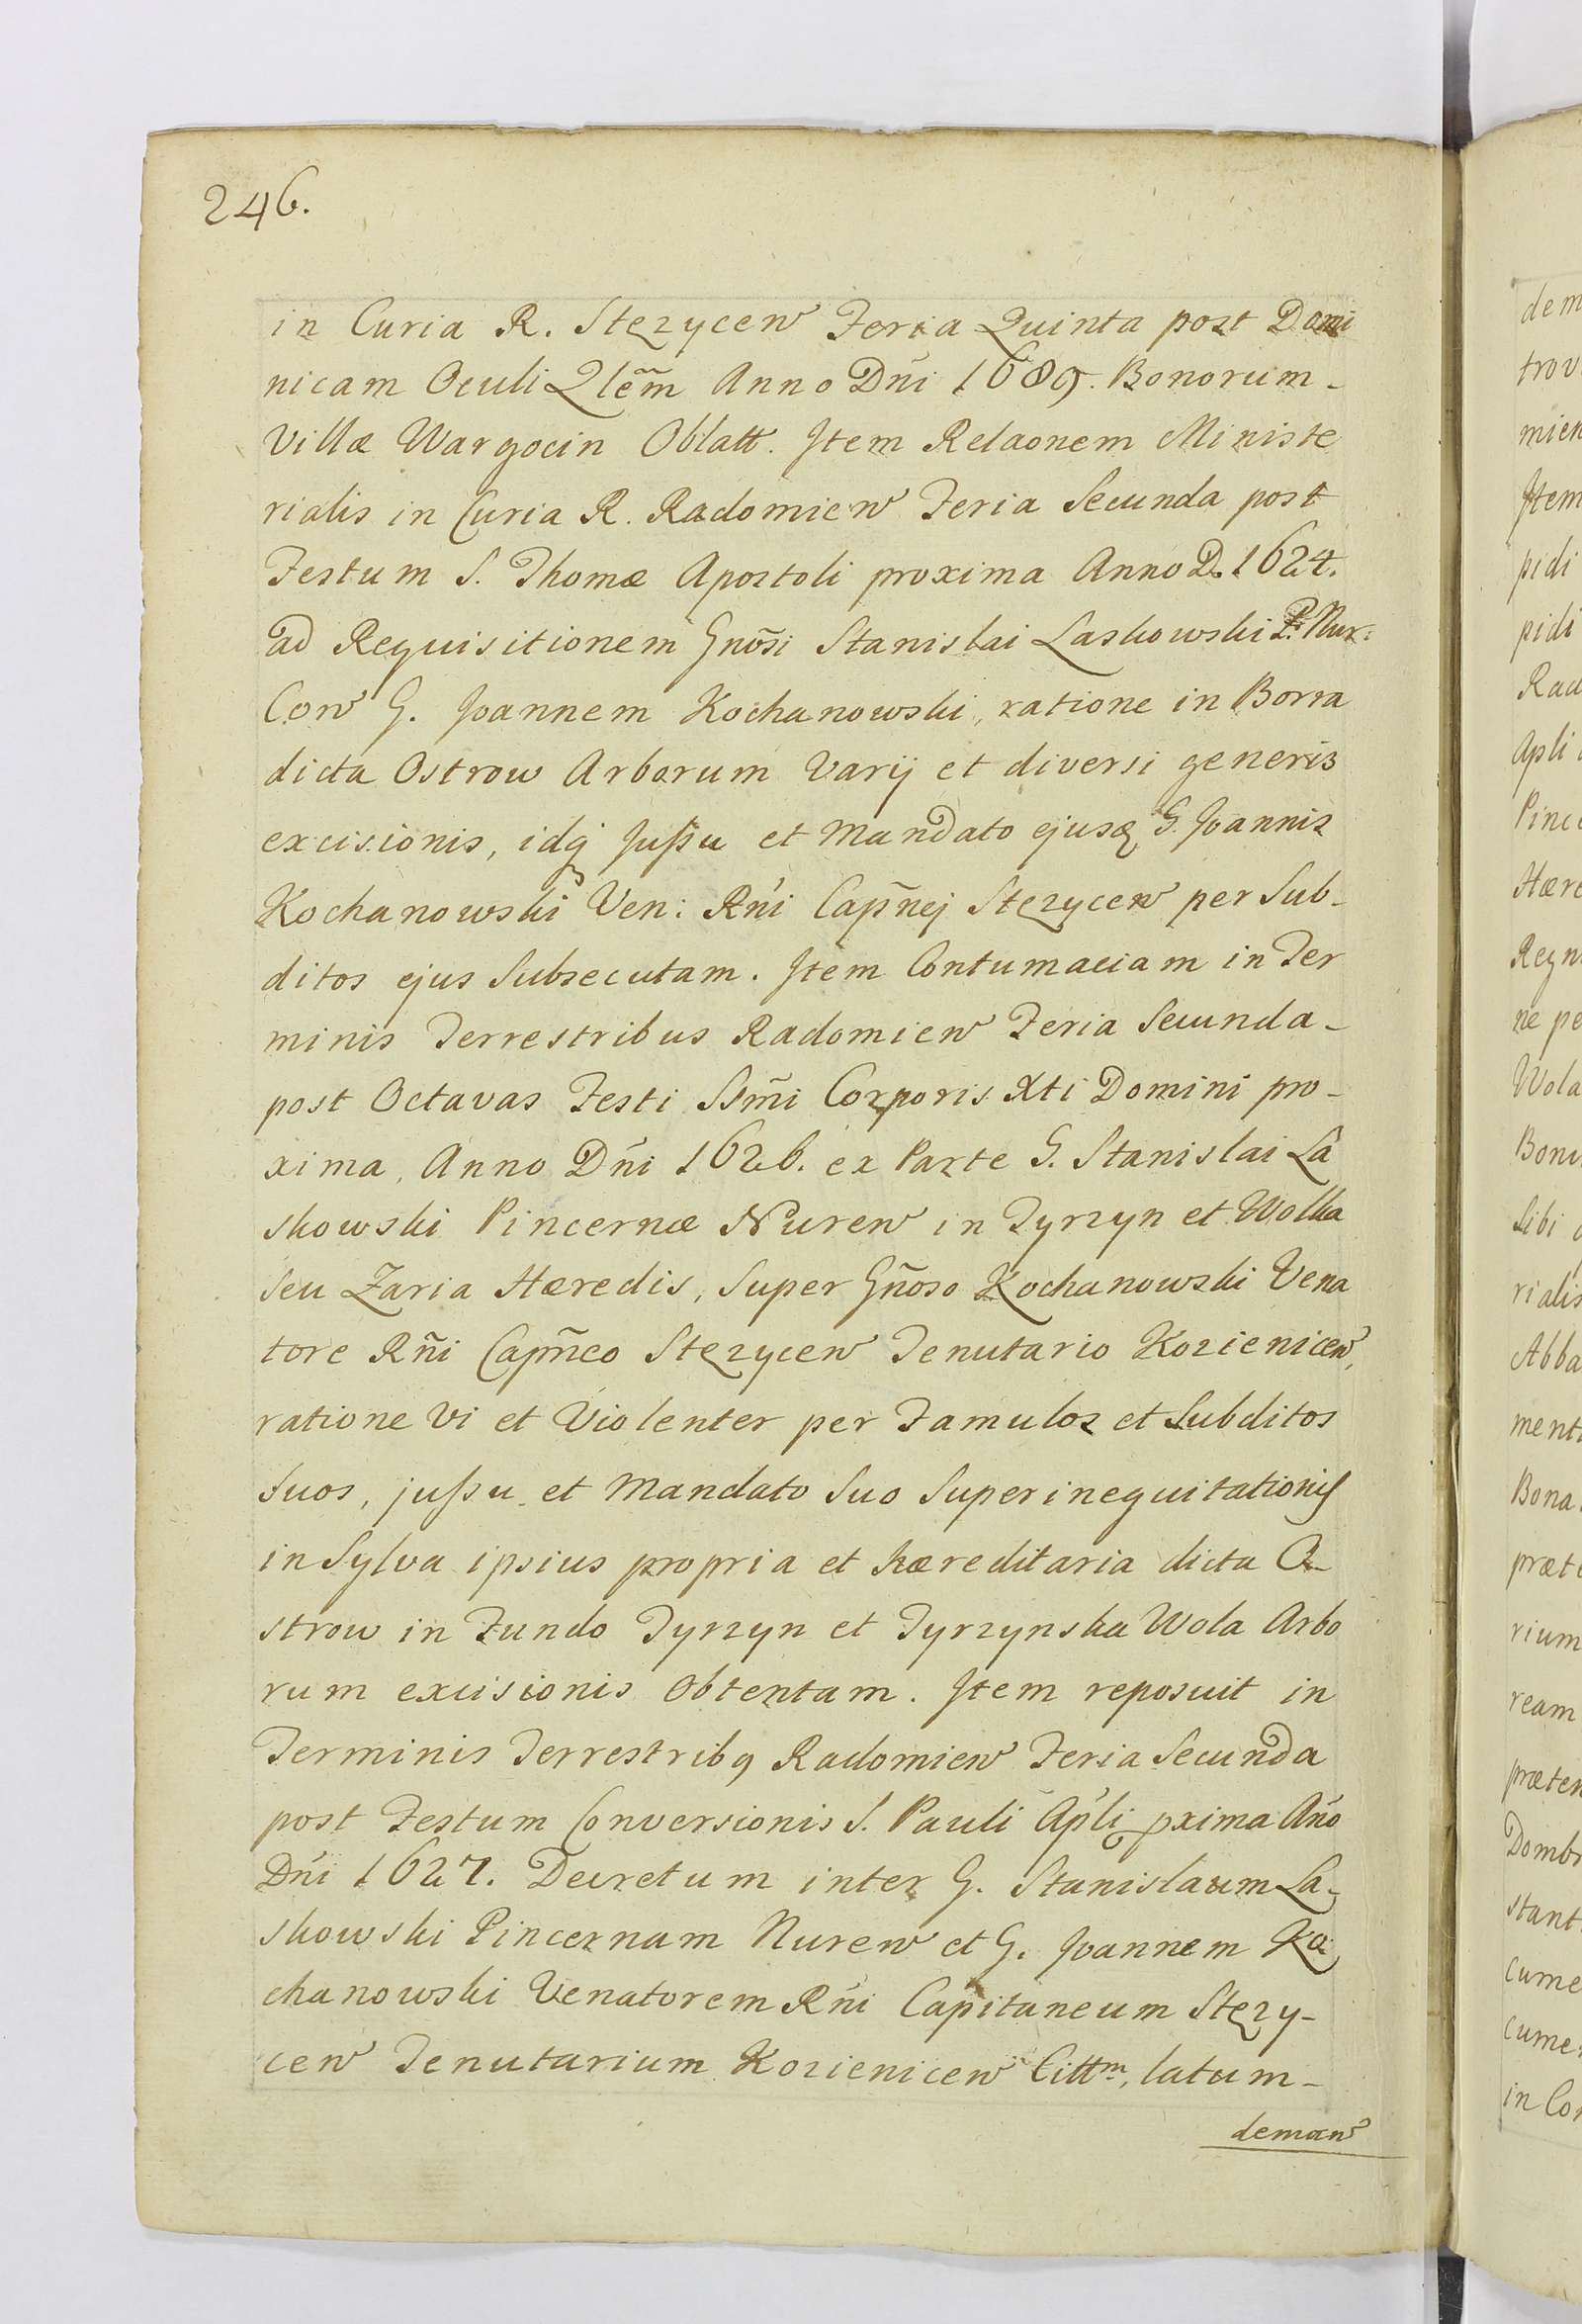 246.
in Curia R. Stęzycen Feria Quinta post Domi
nicam Oculi Qlem̃ Anno Dñi 1689. Bonorum-
Villæ Wargocin Oblatt. Item Relaonem Ministe
rialis in Curia R. Radomien Feria Secunda post
Festum S. Thomæ Apostoli proxima Anno D. 1624.
ad Requisitionem Gnõsi Stanislai Laskowski P. Nur:
Con G. Joannem Kochanowski, ratione in Borra
dicta Ostrow Arborum Varij et diversi generis
excisionis, idq₃ Jussu et Mandato ejusq G. Joannis
Kochanowski Ven: Rñi Capñej Stęzycen per Sub-
ditos ejus Subsecutam. Item Contumaciam in Ter
minis Terrestribus Radomien Feria Secunda-
post Octavas Festi SSm̃i Corporis Xti Domini pro-
xima, Anno Dñi 1626. ex Parte G. Stanislai La
skowski Pincernæ Nuren in Tyrzyn et Wolka
seu Zaria Hæredis, Super Gñoso Kochanowski Vena
tore Rñi Capñeo Stęzycen Tenutario Kozienicen,
ratione Vi et Violenter per Famulos et Subditos
Suos, jussu et Mandato Suo Superinequitationis
in Sylva ipsius propria et hæreditaria dicta O-
strow in Fundo Tyrzyn et Tyrzynska Wola Arbo
rum excisionis obtentam. Item reposuit in
Terminis Terrestribq Radomien Feria Secunda
post Festum Conversionis S. Pauli Apli pxima Año
Dñi 1627. Decretum inter G. Stanislaum La-
skowski Pincernam Nuren et G. Joannem Ko
chanowski Venatorem Rñi Capitaneum Stęzy-
cen Tenutarium Kozienicen Cittm, latum-
deman
dem
trov
mien
Item
pidi
pidi
Rad
Apli
Pinc
Hære
Regn
ne pe
Wola
Bon
Sibi
rialis
Abba
ment
Bona
præt
rium
ream
præten
Domb
stant
cume
cume
in Co